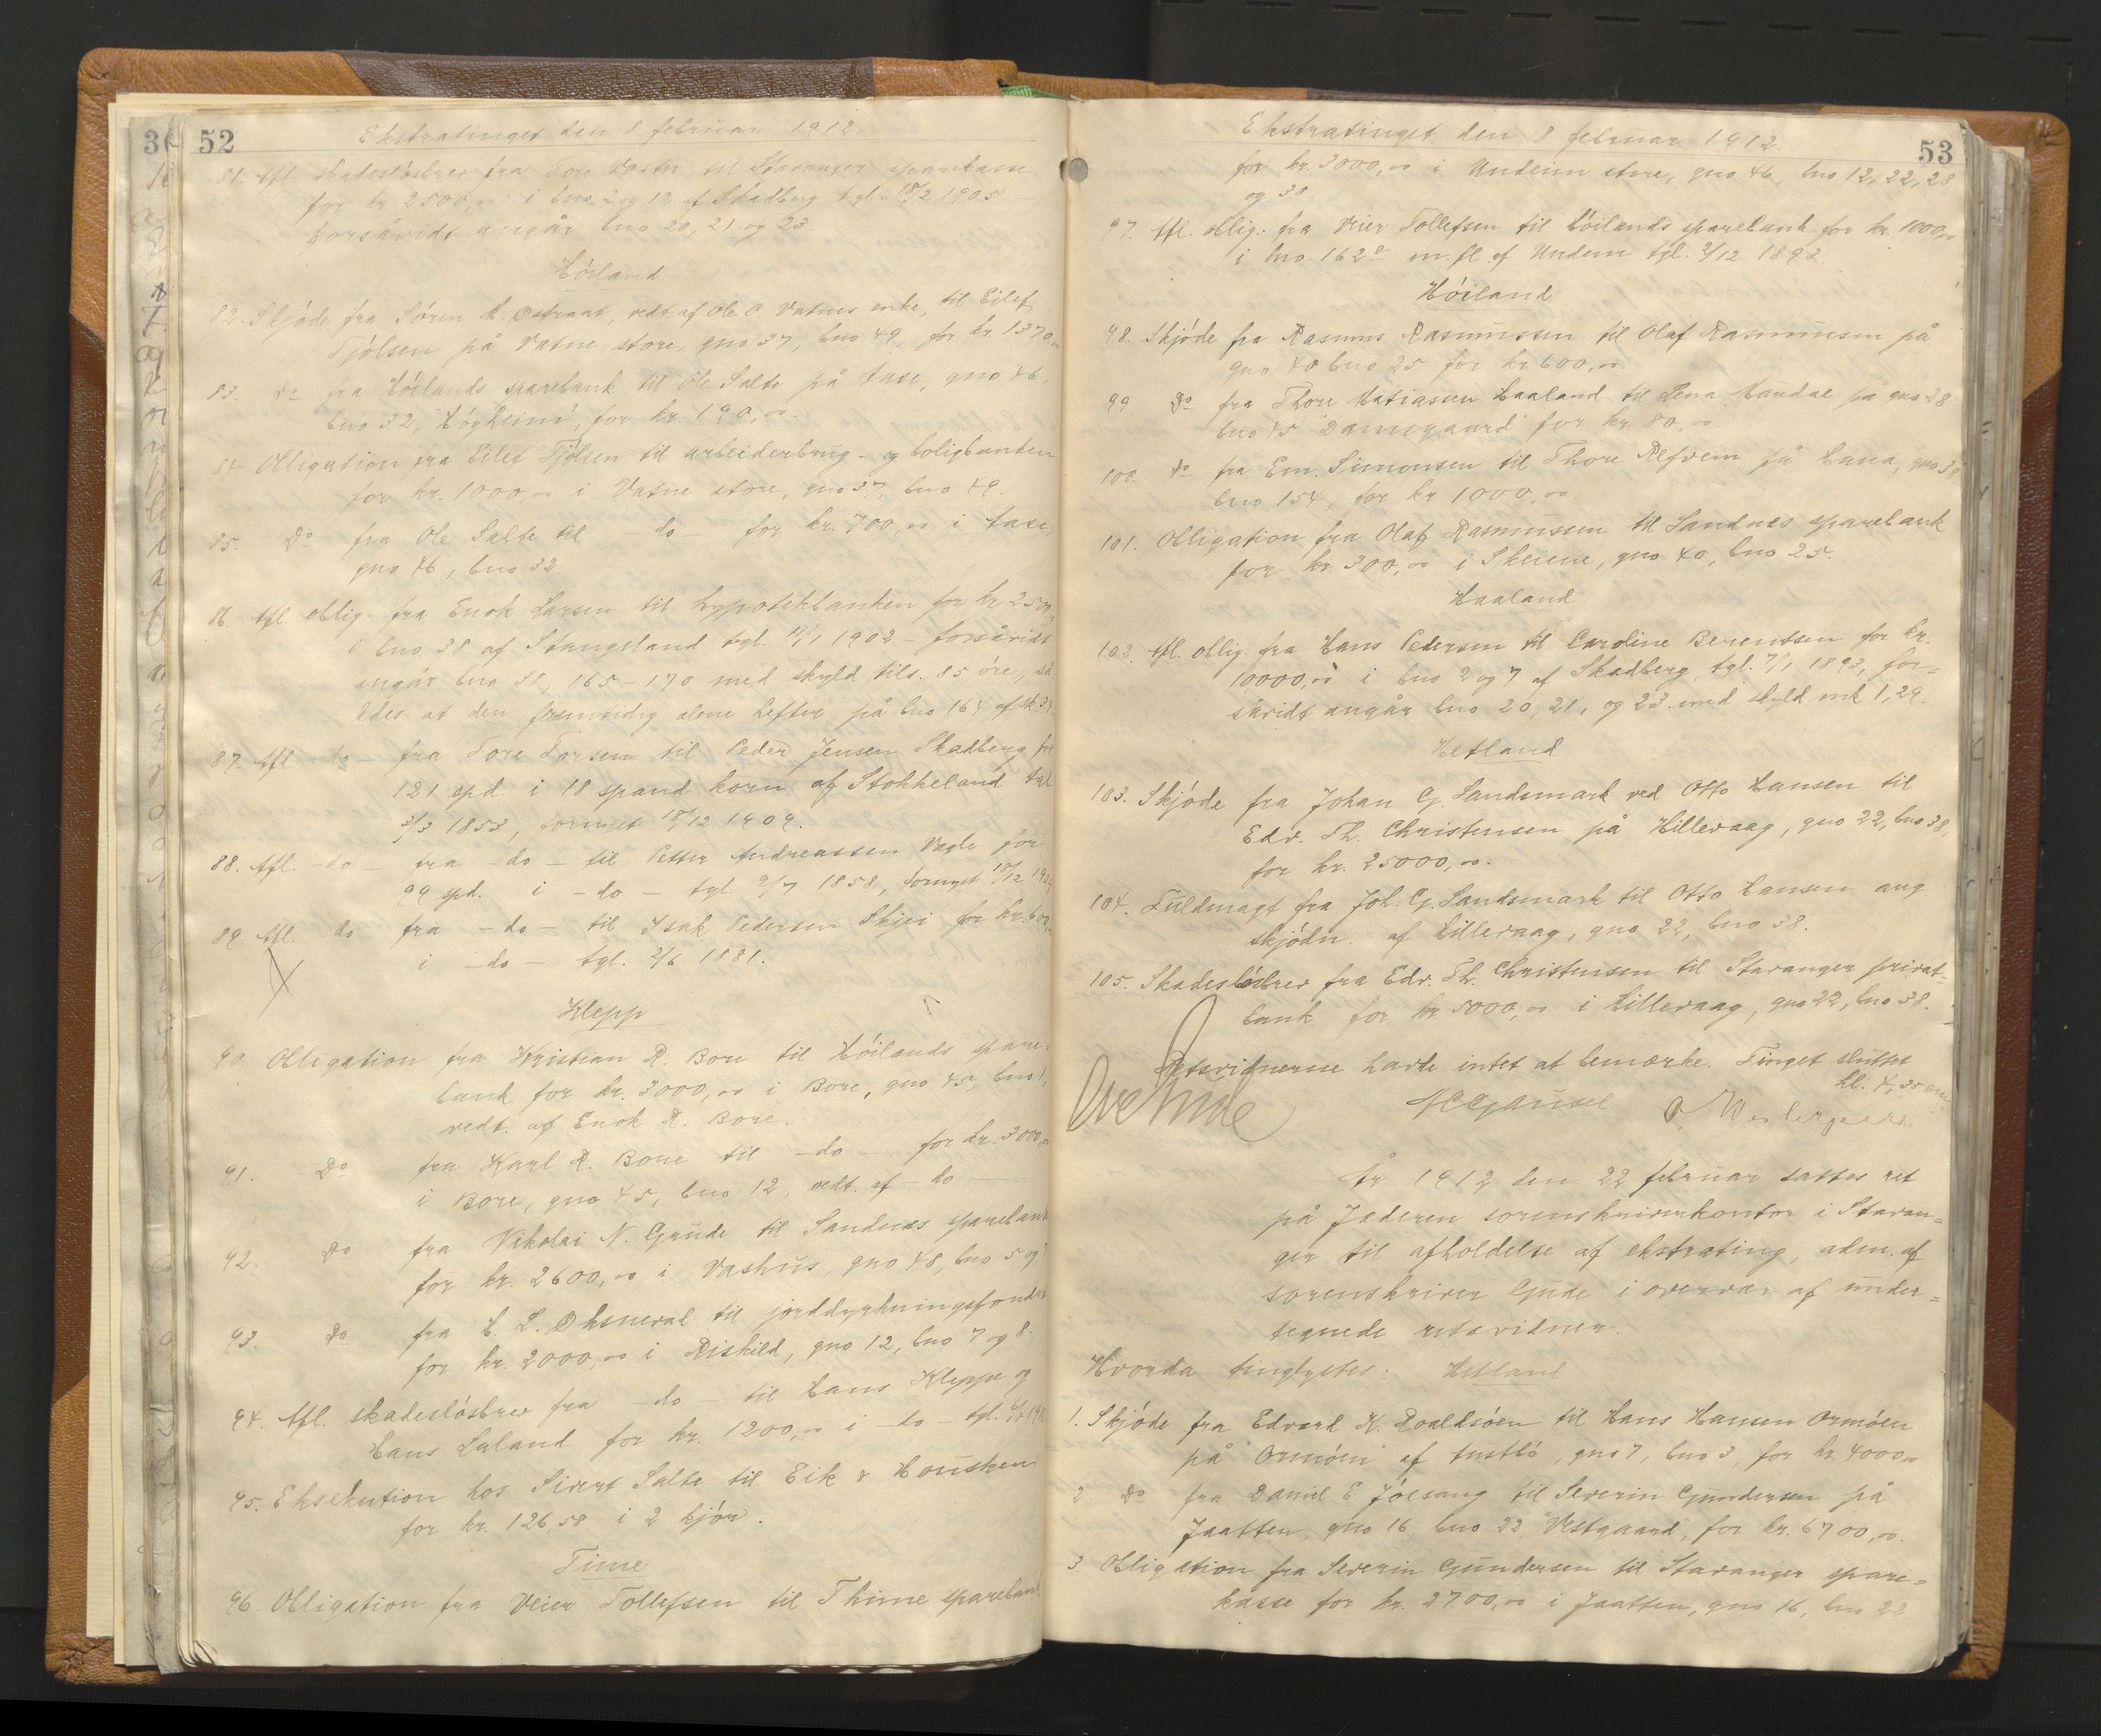 52
Ekstratinget den 8 februar 1912
81. Afl. skadesløsbrev fra Tore Vostn til Stavanger sparekasse
for kr 2500,00 i bno 2 og 12 af Skadberg tgl. 18/2 1905 –
forsåvidt angår bno 20, 21 og 23.
Høiland
82. Skjøde fra Sören K. Ostraat, vedt. af Ole O Vatnes enke, til Eilef
Tjölsen på Vatne store, gno 37, bno 49, for kr. 1370,00
83. Do fra Höilands sparebank til Ole Salte på Aase, gno 46,
bno 32, "Högheim", for kr. 190,00.
84. Obligation fra Eilef Tjölsen til arbeiderbrug- og boligbanken
for kr. 1000,00 i Vatne store, gno 37, bno 49.
85. Do fra Ole Salte til –do– for kr. 700,00 i Aase,
gno 46, bno 32.
86. Afl. oblig. fra Enok Larsen til hypotekbanken for kr 2500,
i bno 38 af Stangeland tgl. 11/1 1902 – forsåvidt
angår bno 38, 165–170 med skyld tils. 85 öre,
kdes at den fremtidig alene hefter på bno 164 af sk. 34.
87. Afl –do– fra Tore Torsen til Peder Jensen Skadberg for
121 spd. i 18 spand korn af Stokkeland tgl
3/3 1853, fornyet 18/12 1909.
88. Afl. –do– fra –do– til Petter Andreassen Vagle for
99 spd. i –do– tgl. 2/7 1858, fornyet 18/12 1909
89. Afl. do fra –do– til Isak Pedersen Skjei for kr. 600,
i –do– tgl. 2/6 1881.
Klepp
90. Obligation fra Kristian R. Bore til Höilands spare-
bank for kr. 3000,00 i Bore, gno 45, bno 1,
vedt. af Enok R. Bore.
91. Do fra Karl R. Bore til –do– for kr. 3000,00
i Bore, gno 45, bno 12, vedt. af –do–
92. Do fra Nikolai N. Grude til Sandnæs sparebank
for kr. 2600,00 i Vashus, gno 48, bno 5 og
93. Do fra L. Oksnevad til jorddyrkningsfondet
for kr. 2000,00 i Riskild, gno 12, bno 7 og 8.
94. Afl. skadeslösbrev fra –do– til Hans Kleppe og
Hans Laland for kr. 1200,00 i –do– tgl.
95. Eksekution hos Sivert Salte til Eik & Housken
for kr. 126,58 i 2 kjør.
Time
96. Obligation fra Veier Tollefsen til Thime sparebank
53
Ekstratinget den 8 februar 1912.
for kr. 3000,00 i Undeim store, gno 46, bno 12, 22, 28
og 30.
97. Afl. oblig. fra Veier Tollefsen til Höilands sparebank for kr. 1000,00
i lno 162a m.fl. af Undem tgl. 2/12 1893.
Höiland
98. Skjöde fra Rasmus Rasmussen til Olaf Rasmussen på
gno 40 bno 25 for kr. 600,00.
99. Do fra Thore Matiassen Haaland til Lena Haudal på gno 38
bno 45 "Damsgaard" for kr. 80,00.
100. Do fra Em. Simonsen til Thore Refvem på Hana, gno 38
bno 154, for kr. 1000,00.
101. Obligation fra Olaf Rasmussen til Sandnæs sparebank
for kr. 300,00 i Skeiene, gno 40, bno 25.
Haaland
102. Afl. oblig. fra Hans Pedersen til Caroline Berentsen for kr.
10000,00 i bno 2 og 7 af Skadberg, tgl. 7/1 1893, for-
såvidt angår bno 20, 21, og 23 med skyld mk 1,29.
Hetland
103. Skjöde fra Johan G. Sandsmark ved Otto Hansen til
Edv. Th. Christensen på Hillevaag, gno 22, bno 38,
for kr. 25000,00.
104. Fuldmagt fra Joh. G. Sandsmark til Otto Hansen ang
skjödn. af Hillevaag, gno 22, bno 38.
105. Skadeslösbrev fra Edv. Th. Christensen til Stavanger privat-
bank for kr. 5000,00 i Hillevaag, gno 22, bno 38.
Retsvidnerne havde intet at bemærke. Tinget sluttet
kl. 4,35 em.
Ove Gude HC Gausel
År 1912 den 22 februar sattes ret
på Jæderen sorenskriverkontor i Stavan-
ger til afholdelse af ekstrating, adm. af
sorenskriver Gude i overvær af under-
tegnede retsvidner.
Hvorda tinglystes: Hetland
1. Skjöde fra Edvard K. Roaldsöen til Hans Hansen Ormöen
på "Ormöen" af Austbö, gno 7, bno 3, for kr. 4000,00
2 Do fra Daniel E Jössang til Severin Gundersen på
Jaatten, gno 16, bno 22, "Vestgaard", for kr. 6700,00.
3 Obligation fra Severin Gundersen til Stavanger spare-
kasse for kr. 2700,00 i Jaatten, gno 16, bno 22